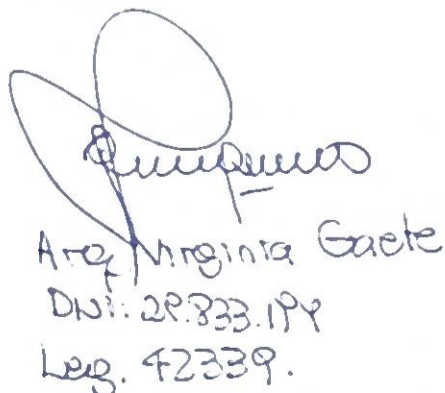 Arq. Virginia Gaete
DNI: 28.833.199
Leg. 42339.